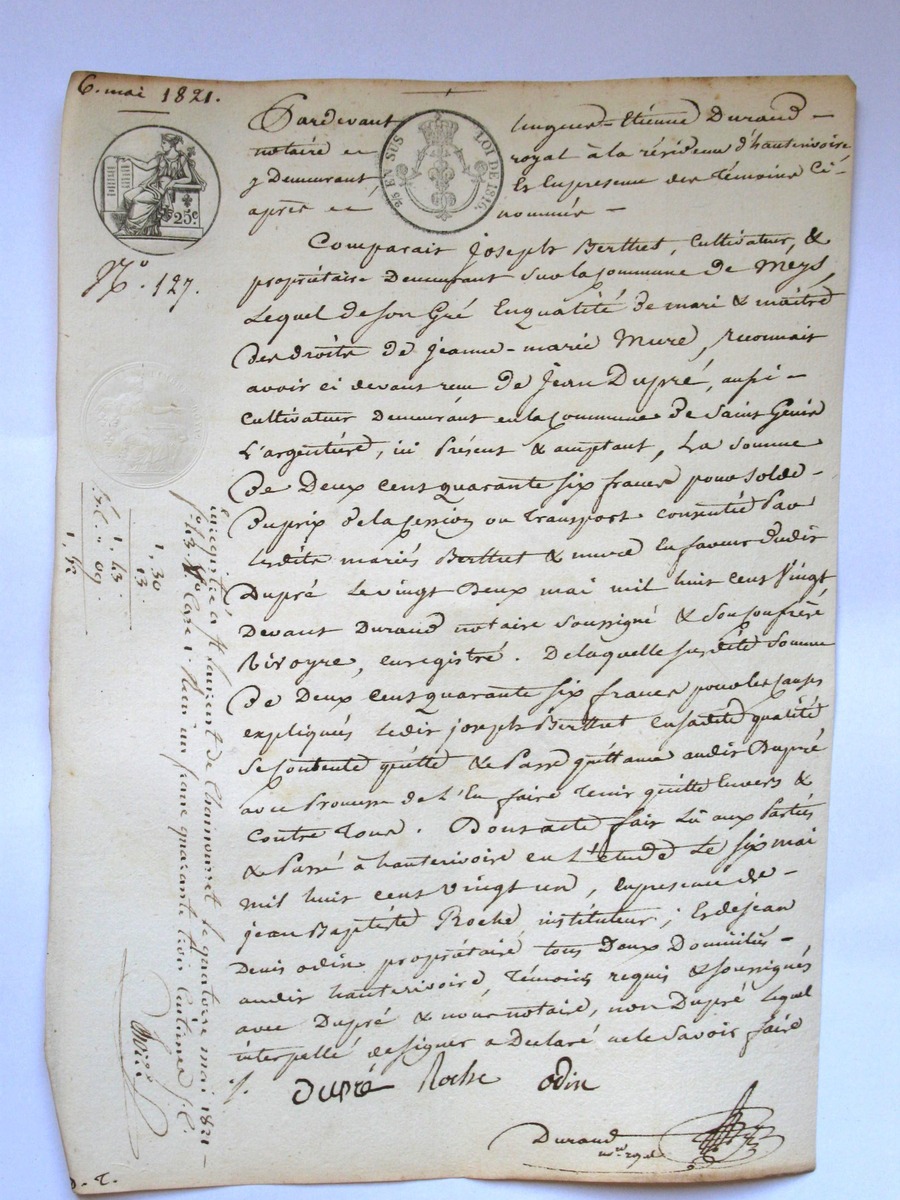 6. mai 1821.
25 EN SUS LOI DE 1816.
25c
N.º 127.
Pardevant Hugues-Etienne Durand -
notaire royal à la résidence d'hauterivoire
y Demeurant Et En presence des Témoins Ci-
après nommés -
Comparait Joseph Berthet, Cultivateur, &
propriétaire Demeurant Sur la Commune de Meys,
Lequel de Son Gré En qualité de mari & maitre
des droits de jeanne-marie Mure, reconnait
avoir ci devant reçu de Jean Dupré, aussi -
Cultivateur Demeurant en la Commune de Saint Genis
L'argentière, ici Présent & acceptant, La Somme
De Deux Cent quarante Six francs pour Solde -
Du prix de la Cession ou Transport Consentie Par
Lesdits mariés Berthet & mure En faveur dudit
Dupré Le vingt Deux mai mil huit Cent Vingt
Devant Durand notaire Soussigné & Son Confrère
Rivoyre, enregistré. De laquelle Susdite Somme
De Deux Cent quarante Six francs pour les Causes
expliquées Ledit joseph Berthet En sadite qualité
Se Contente quitte & Passe quittance audit Dupré
avec Promesse de L'En faire Tenir quitte Envers &
Contre Tous. Dont acte fait Lû aux Parties
& Passé à hauterivoire en L'étude Le Six mai
mil huit Cent Vingt un, En presence de -
jean Baptiste Roche instituteur; Et de jean
Denis odin propriétaire Tous Deux Domiciliés -
audit hauterivoire, Témoins requis & Soussignés
avec Dupré & nous notaire, non Lequel
interpellé de Signer a Déclaré ne le Savoir faire
Dupré Roche odin
Durand
nore royal
Enregistré à St Laurent de Chamousset le quatorze mai 1821 -
fo. 43 Vo Case 1. Reçu un franc quarante trois Centimes
1, 30
13
1, 43
09
1, 52
D.T.